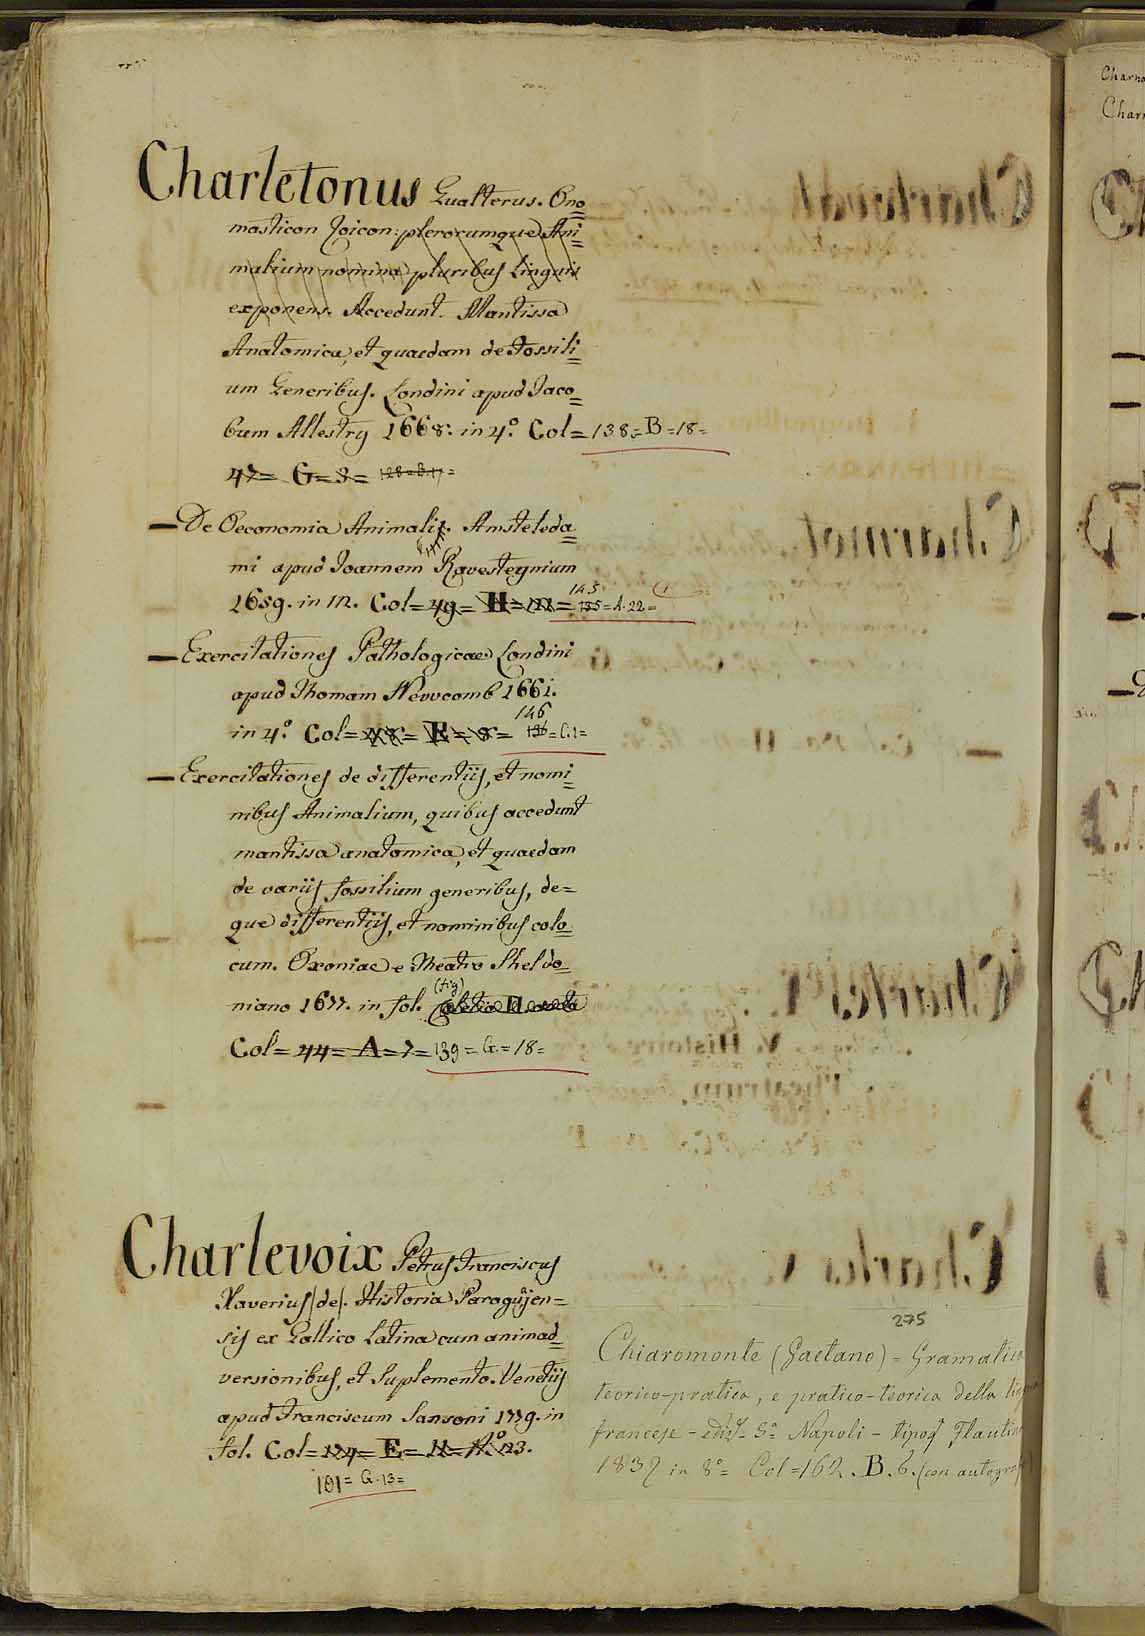 Charletonus Gualterus. Ono=
masticon Zoicon: plerorumque Ani=
malium nomina pluribus linguis
exponens. Accedunt. Mantissa
Anatomica, et quaedam de Fossili=
um Generibus. Londini apud Jaco=
bum Allestry 1668. in 4.º Col= 138= B =18=
47= G= 3= 128= B.17=
— De Oeconomia Animali. Amsteleda=
mi apud Joannem Ravesteynium
1659. in 12. Col= 49= H= 122= 145 135= A. 22=
— Exercitationes Pathologicae Londini
apud Thomam Newcomb 1661.
in 4.º Col= 48= E= 8= 146 136= C.1=
— Exercitationes de differentijs, et nomi=
nibus Animalium, quibus accedunt
mantissa anatomica, et quaedam
de varijs fossilium generibus, de=
que differentijs, et nominibus colo=
rum. Oxoniae e Theatro Sheldo=
niano 1677. in fol. (fig)
Col= 44= A= 7= 139= G.= 18=
Charlevoix Petrus Franciscus
Xaverius (de). Historia Paragujen=
sis ex Gallico Latina cum animad=
versionibus, et Suplemento. Venetijs
apud Franciscum Sansoni 1779. in
fol. Col= 124= E= 11= N.º 123.
101= G. 13=
275
Chiaromonte (Gaetano) = Gramatica
teorico-pratica, e pratico-teorica della
francese - ediz. 5.ª Napoli - tipog
1837 in 8º= Col=162. B. 6. (con
Charno
Char